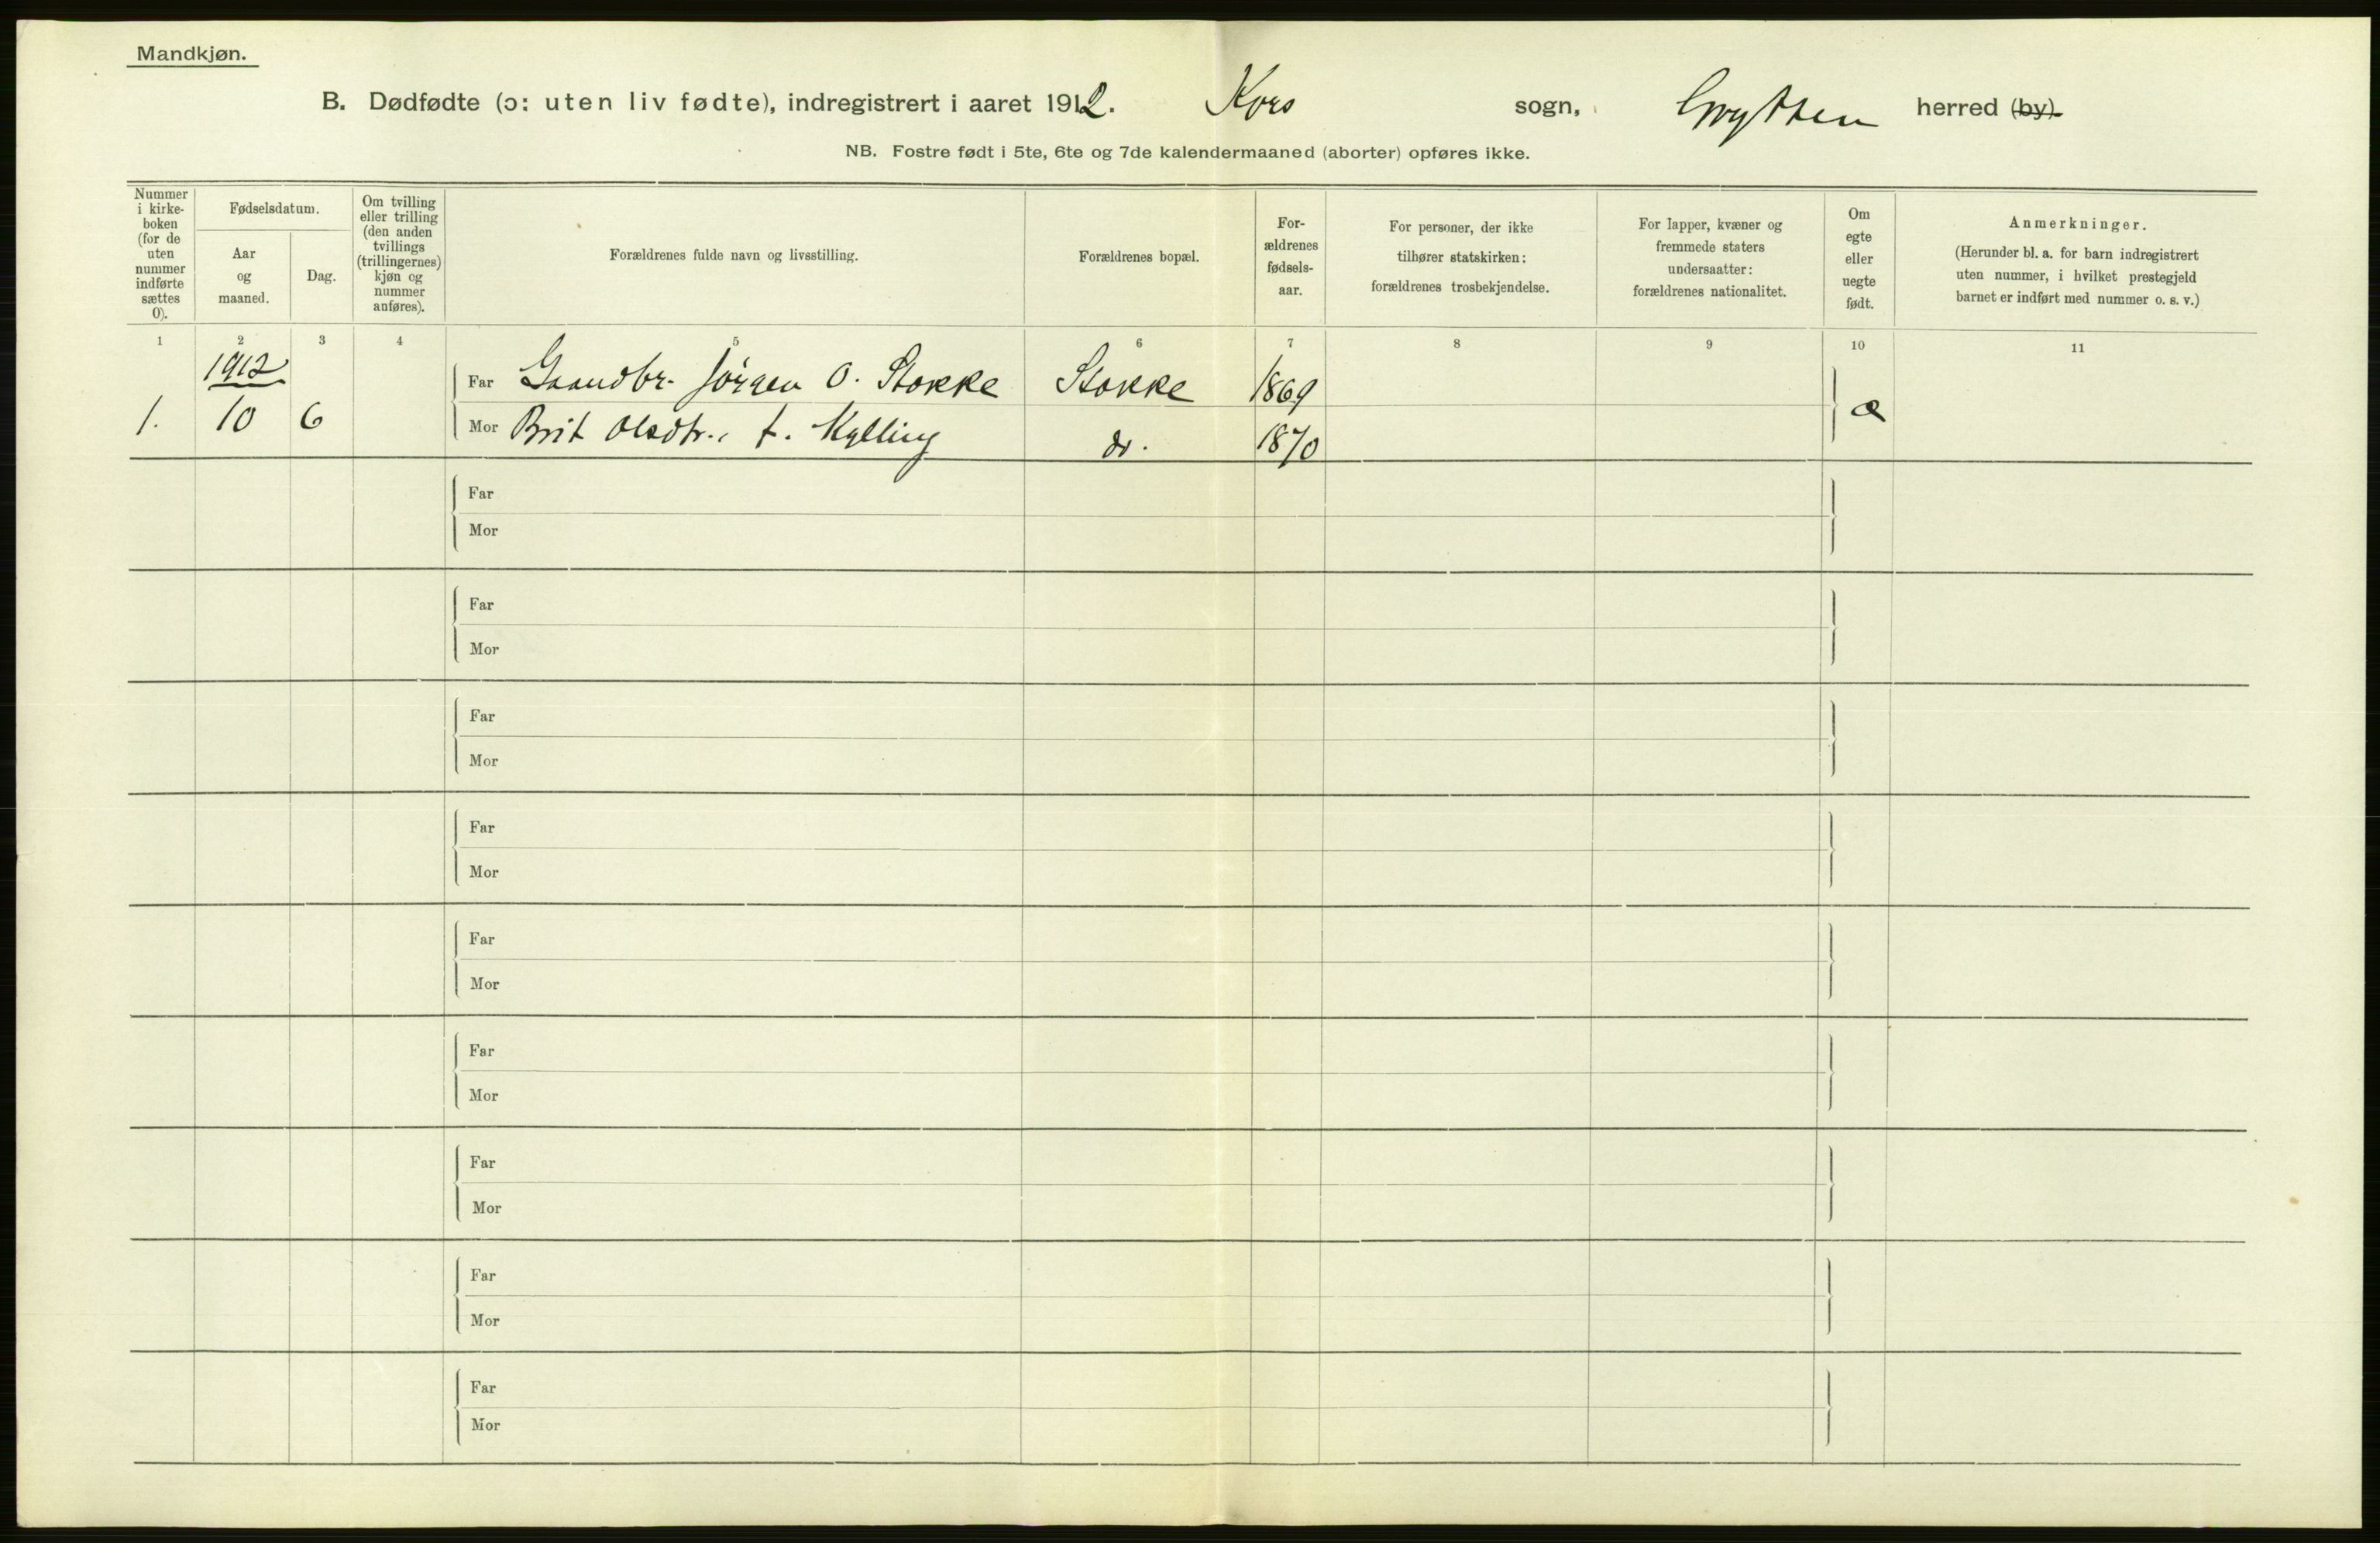 Mandkjøn.
B. Dødfødte (ɔ: uten liv fødte), indregistrert i aaret 1912. Kors sogn, Grytten herred (by).
NB. Fostre født i 5te, 6te og 7de kalendermaaned (aborter) opføres ikke.
Nummer
i kirke-
boken
(for de
uten
nummer
indførte
sættes
0).
Fødselsdatum.
Aar
og
maaned.
Dag.
Om tvilling
eller trilling
(den anden
tvillings
(trillingernes)
kjøn og
nummer
anføres).
Forældrenes fulde navn og livsstilling.
Forældrenes bopæl.
For-
ældrenes
fødsels-
aar.
For personer, der ikke
tilhører statskirken:
forældrenes trosbekjendelse.
For lapper, kvæner og
fremmede staters
undersaatter:
forældrenes nationalitet.
Om
egte
eller
uegte
født.
Anmerkninger.
(Herunder bl. a. for barn indregistrert
uten nummer, i hvilket prestegjeld
barnet er indført med nummer o. s. v.)
1 2 3 4 5 6 7 8 9 10 11
1912
Far Gaardbr. Jørgen O. Stokke Stokke 1869
1. 10 6 Mor Brit Olsdtr., f. Kylling do. 1870 æ
Far
Mor
Far
Mor
Far
Mor
Far
Mor
Far
Mor
Far
Mor
Far
Mor
Far
Mor
Far
Mor